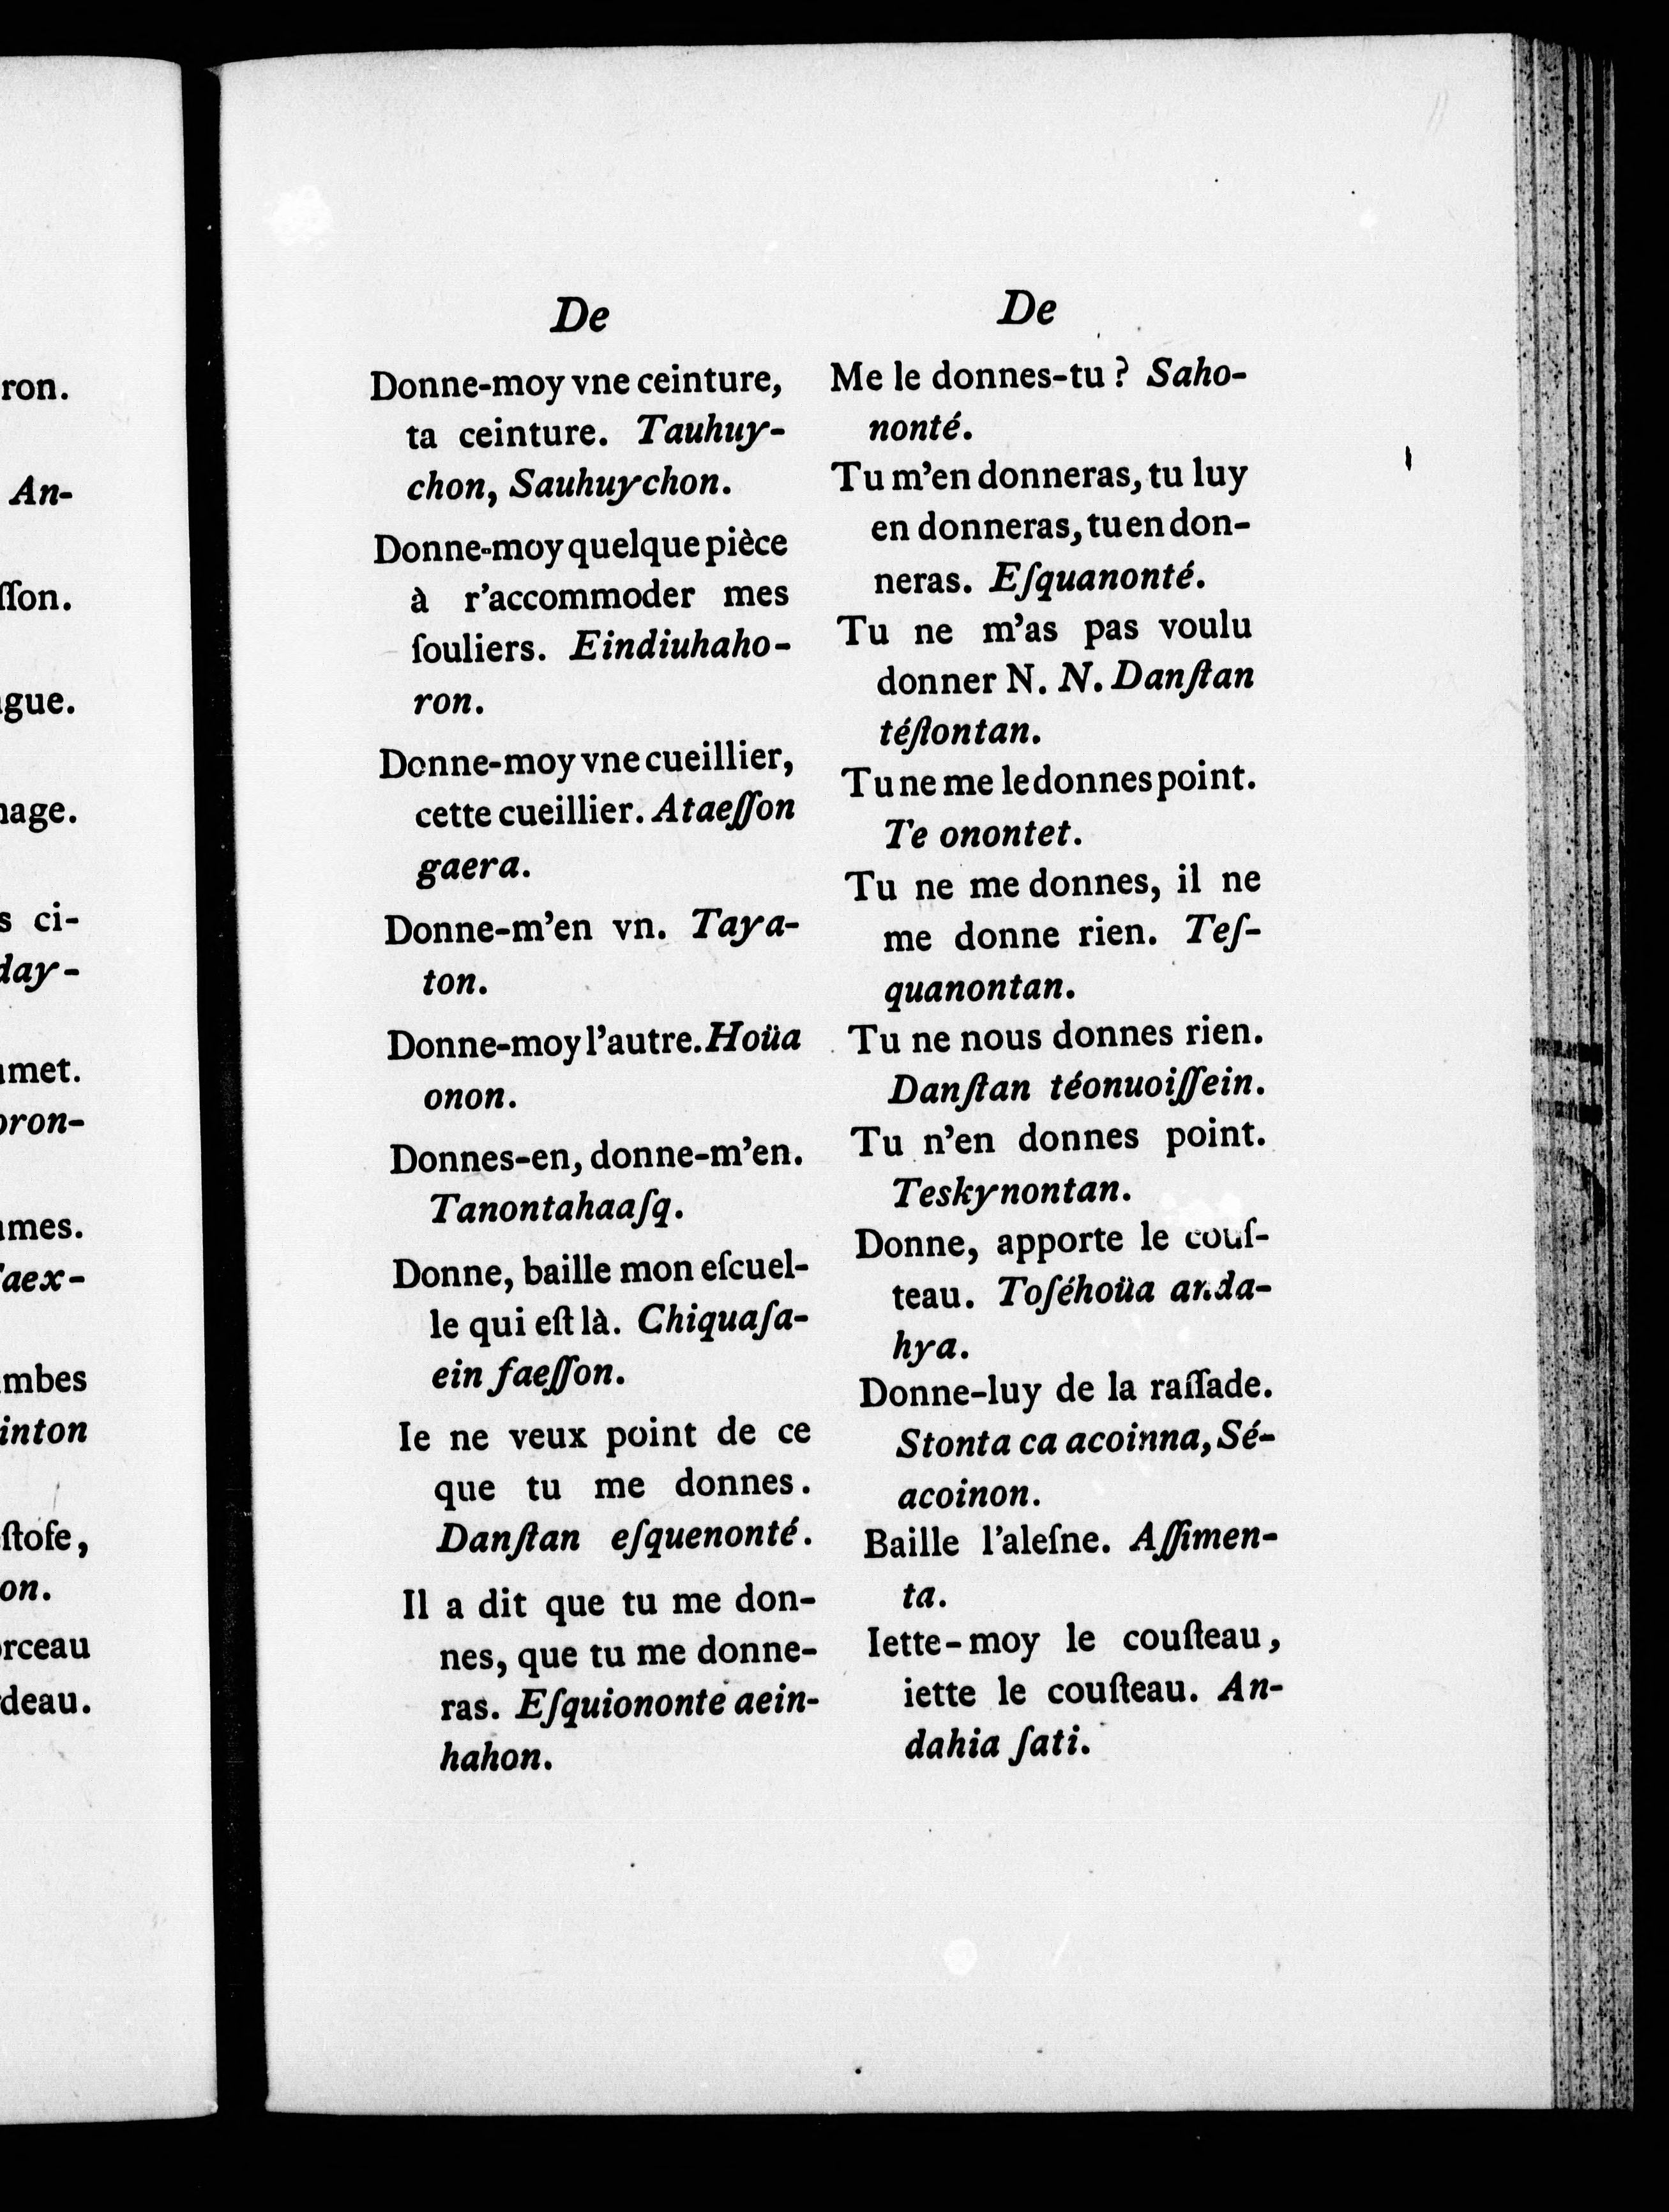 ron.
An-
ſſon.
gue.
nage.
s ci-
day-
met.
oron-
mes.
aex-
mbes
inton
ſtofe,
on.
rceau
deau.
De
Donne-moy vne ceinture,
ta ceinture. Tauhuy-
chon, Sauhuychon.
Donne-moy quelque pièce
à r'accommoder mes
ſouliers. Eindiuhaho-
ron.
Donne-moy vne cueillier,
cette cueillier. Ataeſſon
gaera.
Donne-m'en vn. Taya-
ton.
Donne-moy l'autre. Hoüa
onon.
Donnes-en, donne-m'en.
Tanontahaaſq.
Donne, baille mon eſcuel-
le qui eſt là. Chiquaſa-
ein ſaeſſon.
Ie ne veux point de ce
que tu me donnes.
Danſtan eſquenonté.
Il a dit que tu me don-
nes, que tu me donne-
ras. Eſquiononte aein-
hahon.
De
Me le donnes-tu ? Saho-
nonté.
Tu m'en donneras, tu luy
en donneras, tu en don-
neras. Eſquanonté.
Tu ne m'as pas voulu
donner N. N. Danſtan
téſtontan.
Tu ne me le donnes point.
Te onontet.
Tu ne me donnes, il ne
me donne rien. Teſ-
quanontan.
Tu ne nous donnes rien.
Danſtan téonuoiſſein.
Tu n'en donnes point.
Teskynontan.
Donne, apporte le couſ-
teau. Toſéhoüa anda-
hya.
Donne-luy de la raſſade.
Stonta ca acoinna, Sé-
acoinon.
Baille l'aleſne. Aſſimen-
ta.
Iette-moy le couſteau,
iette le couſteau. An-
dahia ſati.